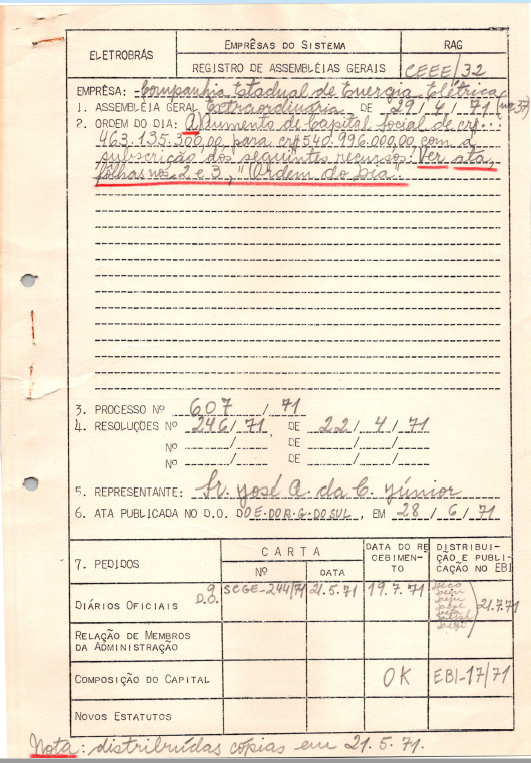 ELETROBRÁS
EMPRÊSAS DO SISTEMA
RAG
REGISTRO DE ASSEMBLÉIAS GERAIS
CEEE/32
EMPRÊSA: -Companhia Estadual de Energia Elétrica
1. ASSEMBLÉIA GERAL Extraordinária DE 29/4/71 (nº 37)
2. ORDEM DO DIA: a) Aumento de Capital Social de cr$
463.135.300,00 para cr$ 540.996.000,00 com a
subscrição dos seguintes recursos: Ver ata,
folhas nos. 2 e 3, "Ordem do Dia".
3. PROCESSO Nº 607 / 71
4. RESOLUÇÕES Nº 246/71 DE 22/4/71
Nº / DE / /
Nº / DE / /
5. REPRESENTANTE: Sr. José A. da C. Júnior
6. ATA PUBLICADA NO D.O. DO E. DO R. G. DO SUL, EM 28/6/71
7. PEDIDOS
CARTA
Nº
DATA
DATA DO RECEBIMENTO
DISTRIBUIÇÃO E PUBLICAÇÃO NO EBI
DIÁRIOS OFICIAIS 9 D.O.
SCGE-244/71
21.5.71
19.7.71
21.7.71
RELAÇÃO DE MEMBROS
DA ADMINISTRAÇÃO
COMPOSIÇÃO DO CAPITAL
OK
EBI-17/71
NOVOS ESTATUTOS
Nota: distribuídas cópias em 21.5.71.